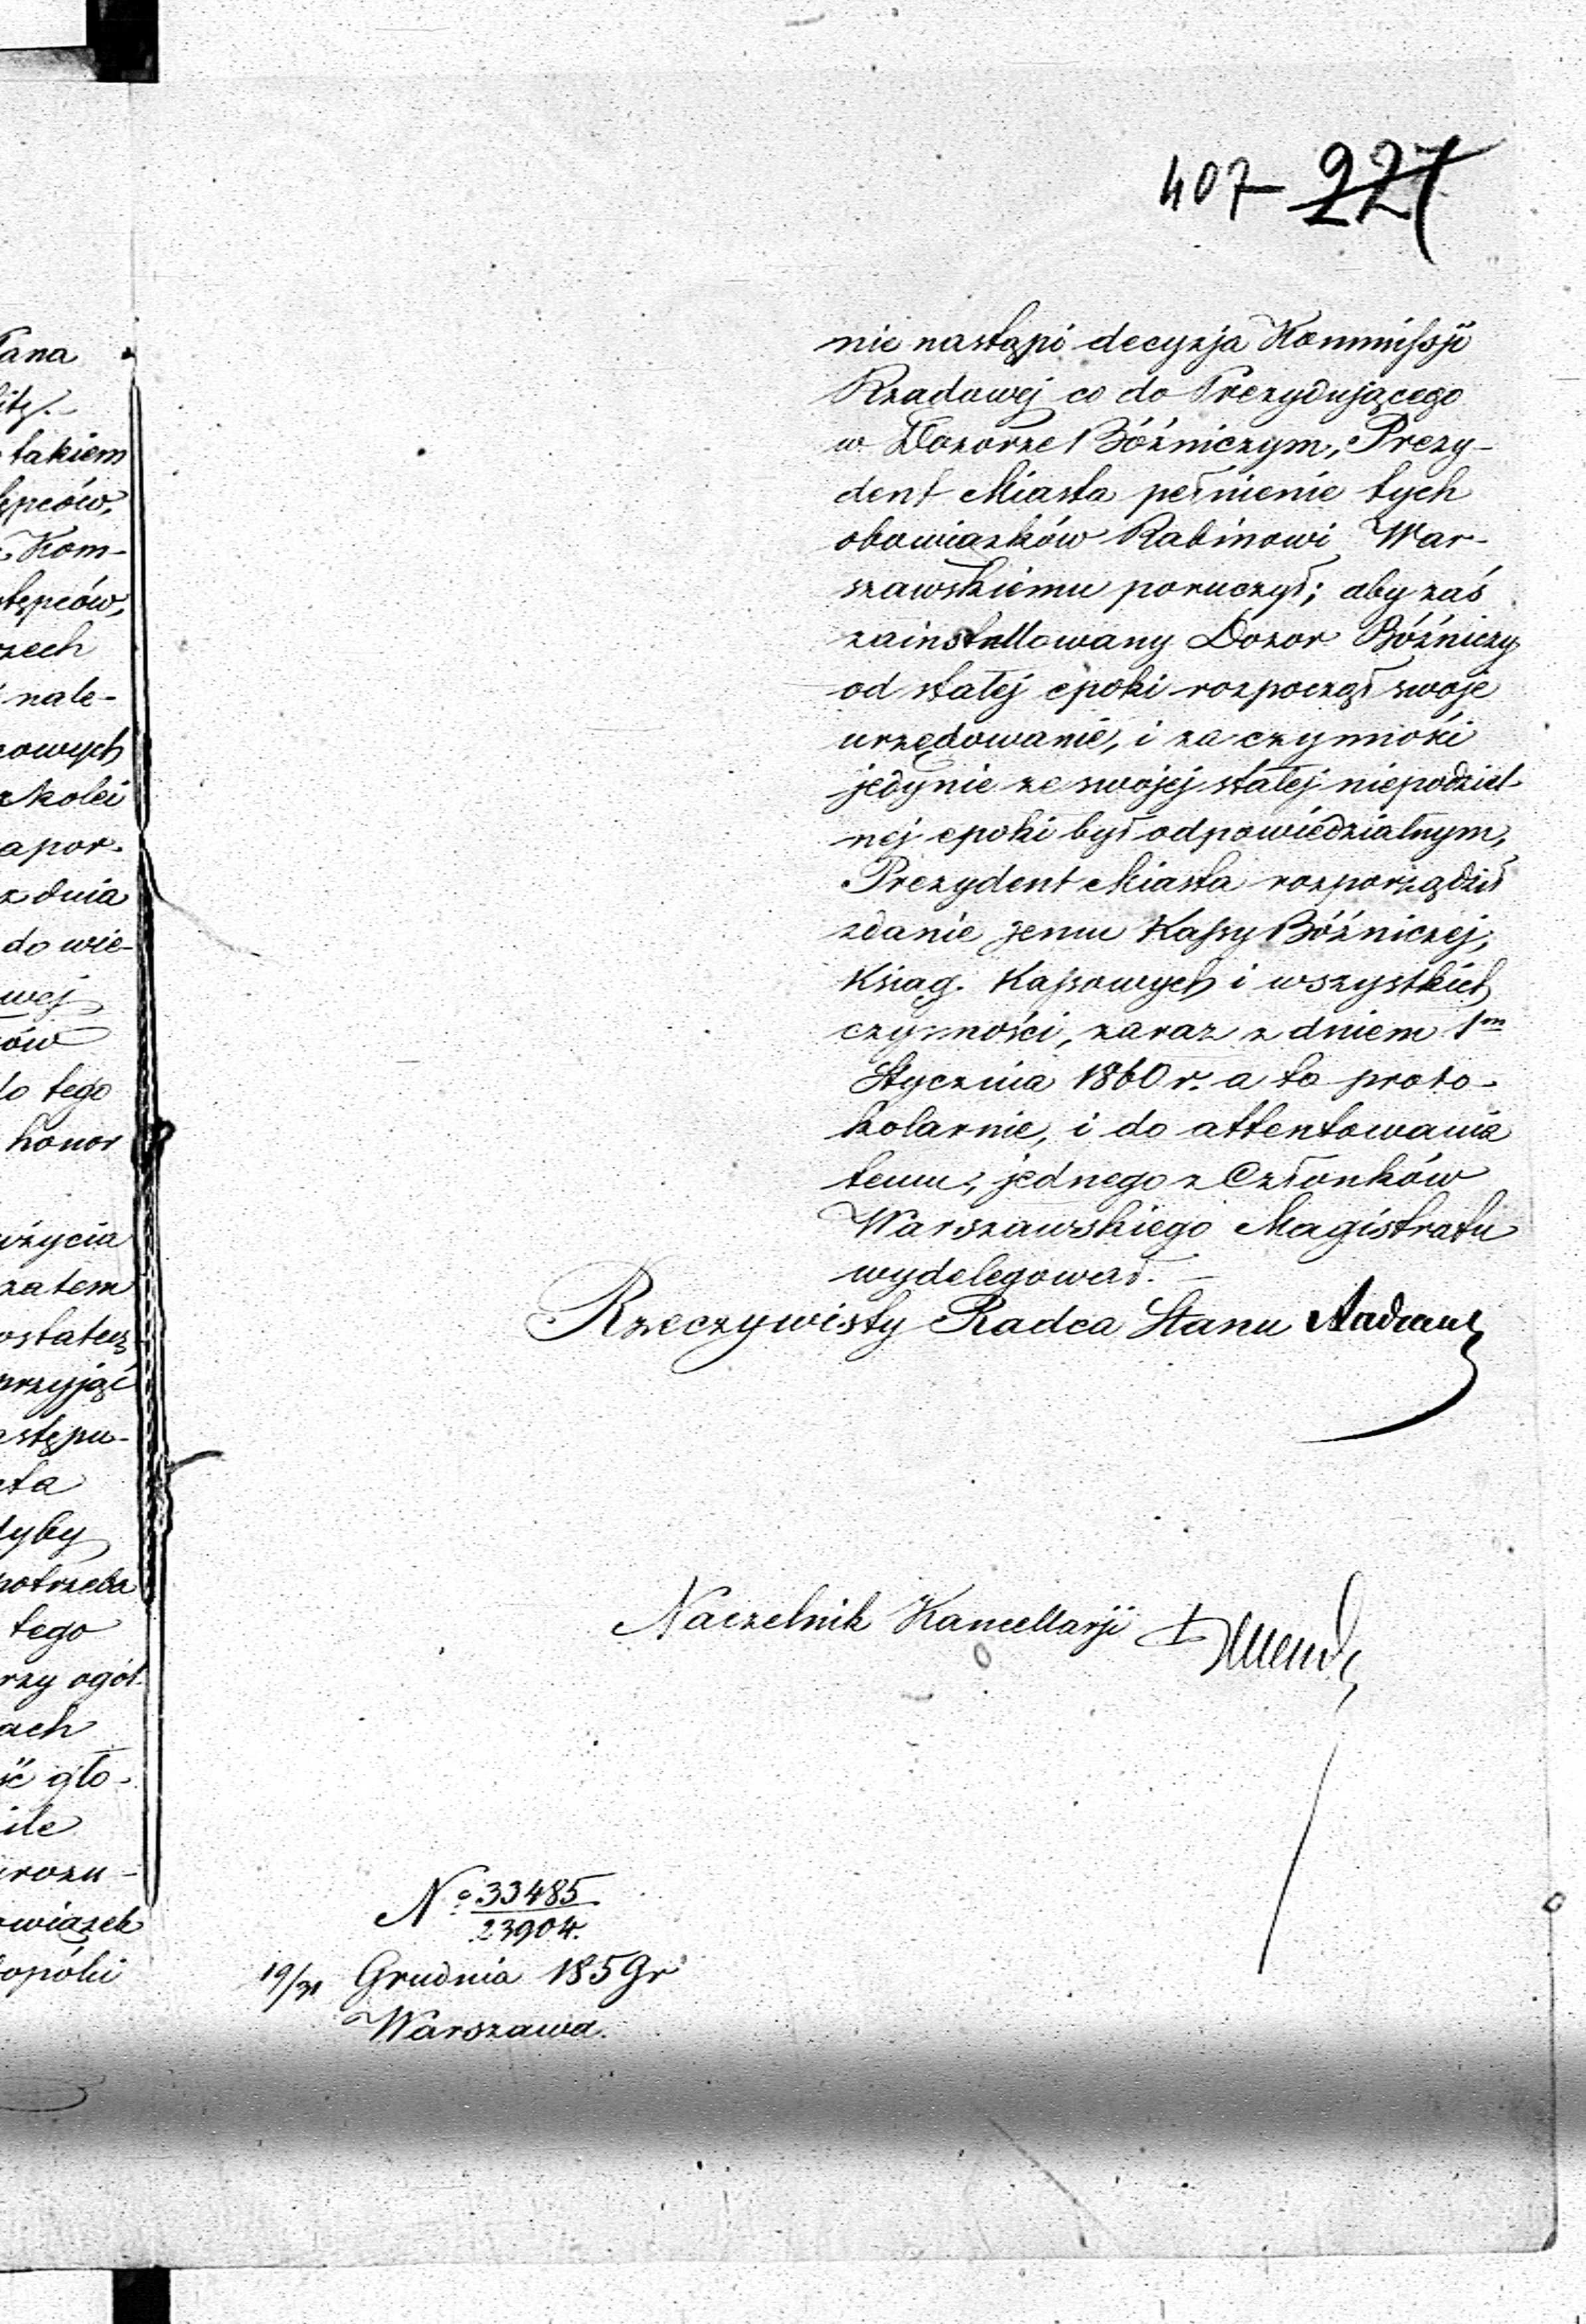 407 227
nie nastąpi decyzja Kommissji
Rządowej co do Prezydującego
w Dozorze Bóźniczym, Prezy-
dent Miasta pełnienie tych
obowiązków Rabinowi War-
szawskiemu poruczył; aby zaś
zainstallowany Dozor Bóźniczy
od stałej epoki rozpoczął swoje
urzędowanie, i za czynności
jedynie ze swojej stałej niepodziel-
nej epoki był odpowiedzialnym,
Prezydent Miasta rozporządził
zdanie jemu Kassy Bóźniczej,
Ksiąg Kassowych i wszystkich
czynności, zaraz z dniem 1m
Stycznia 1860 r. a to proto-
kolarnie, i do attentowania
temu, jednego z Członków
Warszawskiego Magistratu
wydelegował. –
Rzeczywisty Radca Stanu
Naczelnik Kancellarji
No 33485
23904.
19/31 Grudnia 1859 r
Warszawa.
takiem
Kom-
nale-
z kolei
z dnia
do wie-
do tego
honor
zatem
przyjąć
potrzeba
tego